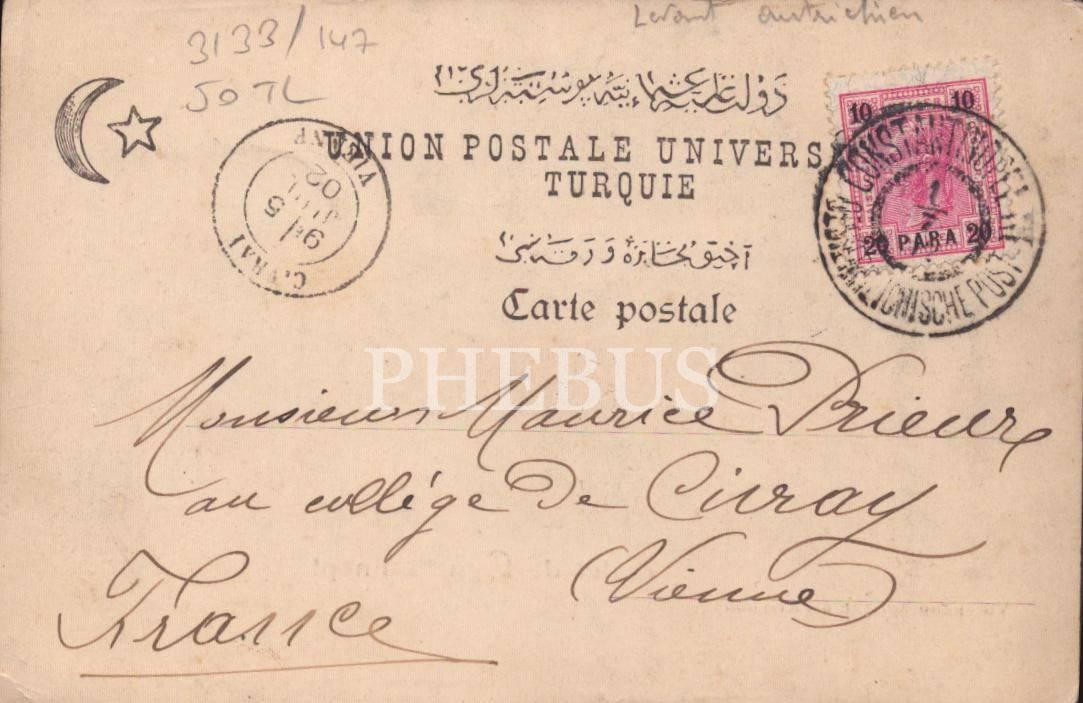 3133/147
50 TL
Levant autrichien
دولت علیهٔ عثمانیه پوسته لری
UNION POSTALE UNIVERS
TURQUIE
آچیق مخابره ورقه سی
Carte postale
10 10
20 PARA 20
CONSTANTINOPEL III
OESTERREICHISCHE POST
CIVRAI
5
02
VIENNE
PHEBUS
Monsieur Maurice Prieur
au collége de Civray
Vienne
France